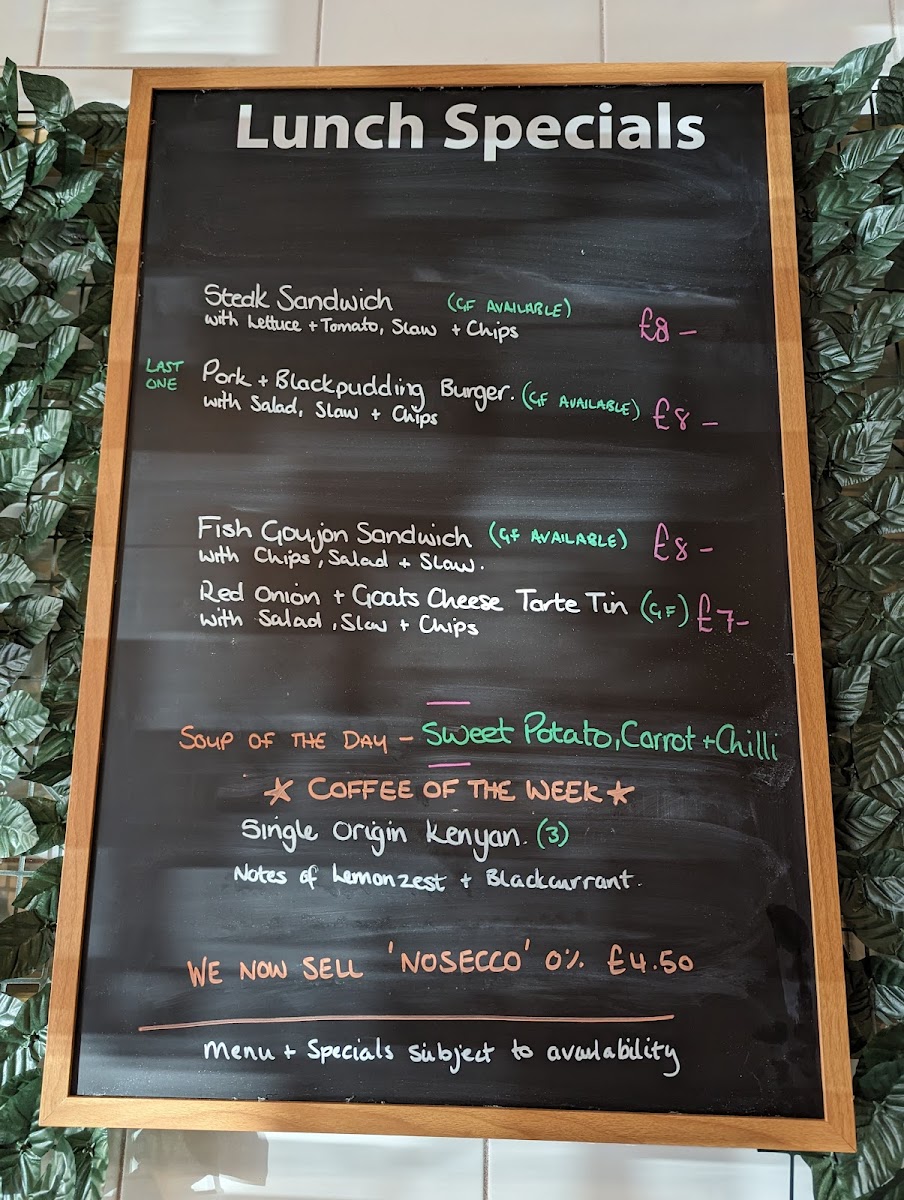 Lunch Specials
Steak Sandwich (GF AVAILABLE)
with Lettuce + Tomato, Slaw + Chips £8 –
LAST ONE
Pork + Blackpudding Burger. (GF AVAILABLE)
with Salad, Slaw + Chips £8 –
Fish Goujon Sandwich (GF AVAILABLE) £8 –
with Chips, Salad + Slaw.
Red Onion + Goats Cheese Tarte Tin (GF) £7–
with Salad, Slaw + Chips
SOUP OF THE DAY – Sweet Potato, Carrot + Chilli
★ COFFEE OF THE WEEK ★
Single Origin Kenyan. (3)
Notes of Lemonzest + Blackcurrant.
WE NOW SELL 'NOSECCO' 0% £4.50
Menu + Specials subject to availability